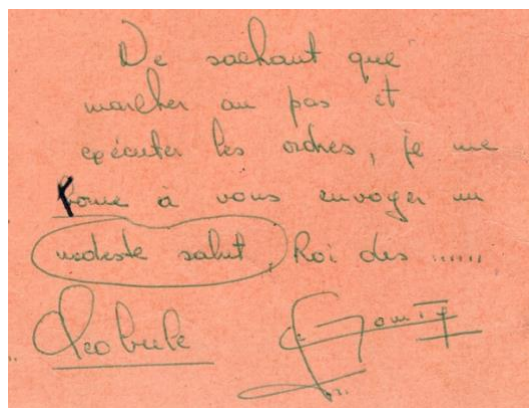 Ne sachant que
marcher au pas et
exécuter les ordres, je me
borne à vous envoyer un
modeste salut, Roi des ......
Cleobule